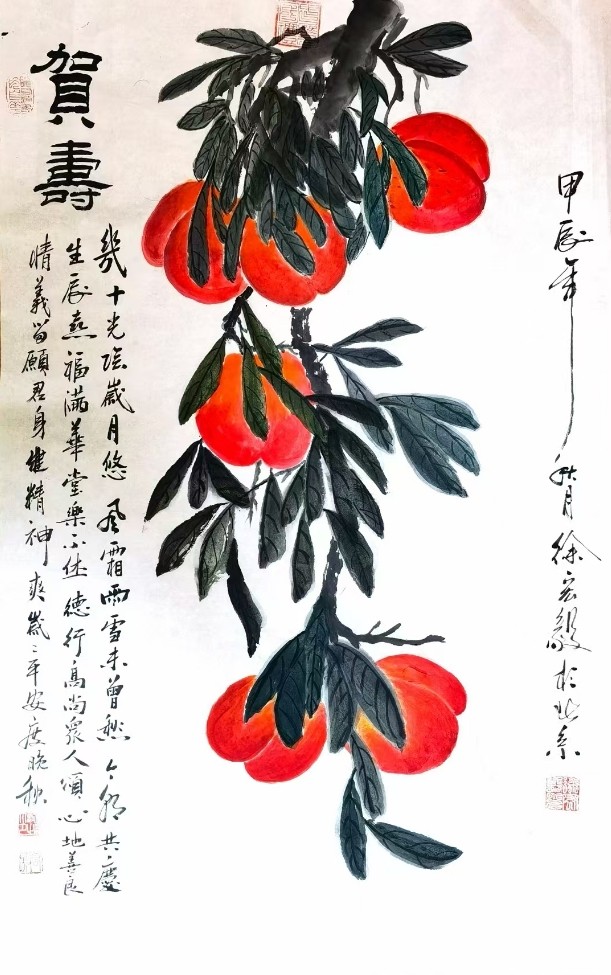 賀壽
幾十光陰歲月悠風霜雨雪未曾愁今朝共慶
生辰熹福滿華堂樂不休德行高尚眾人頌心地善良
情義留願君身健精神爽歲歲平安度晚秋
甲辰年秋月徐宏毅於北京